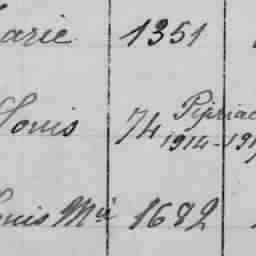 arie 1351
Louis 74 Pipriac
1914-191
ouis Mie 1682